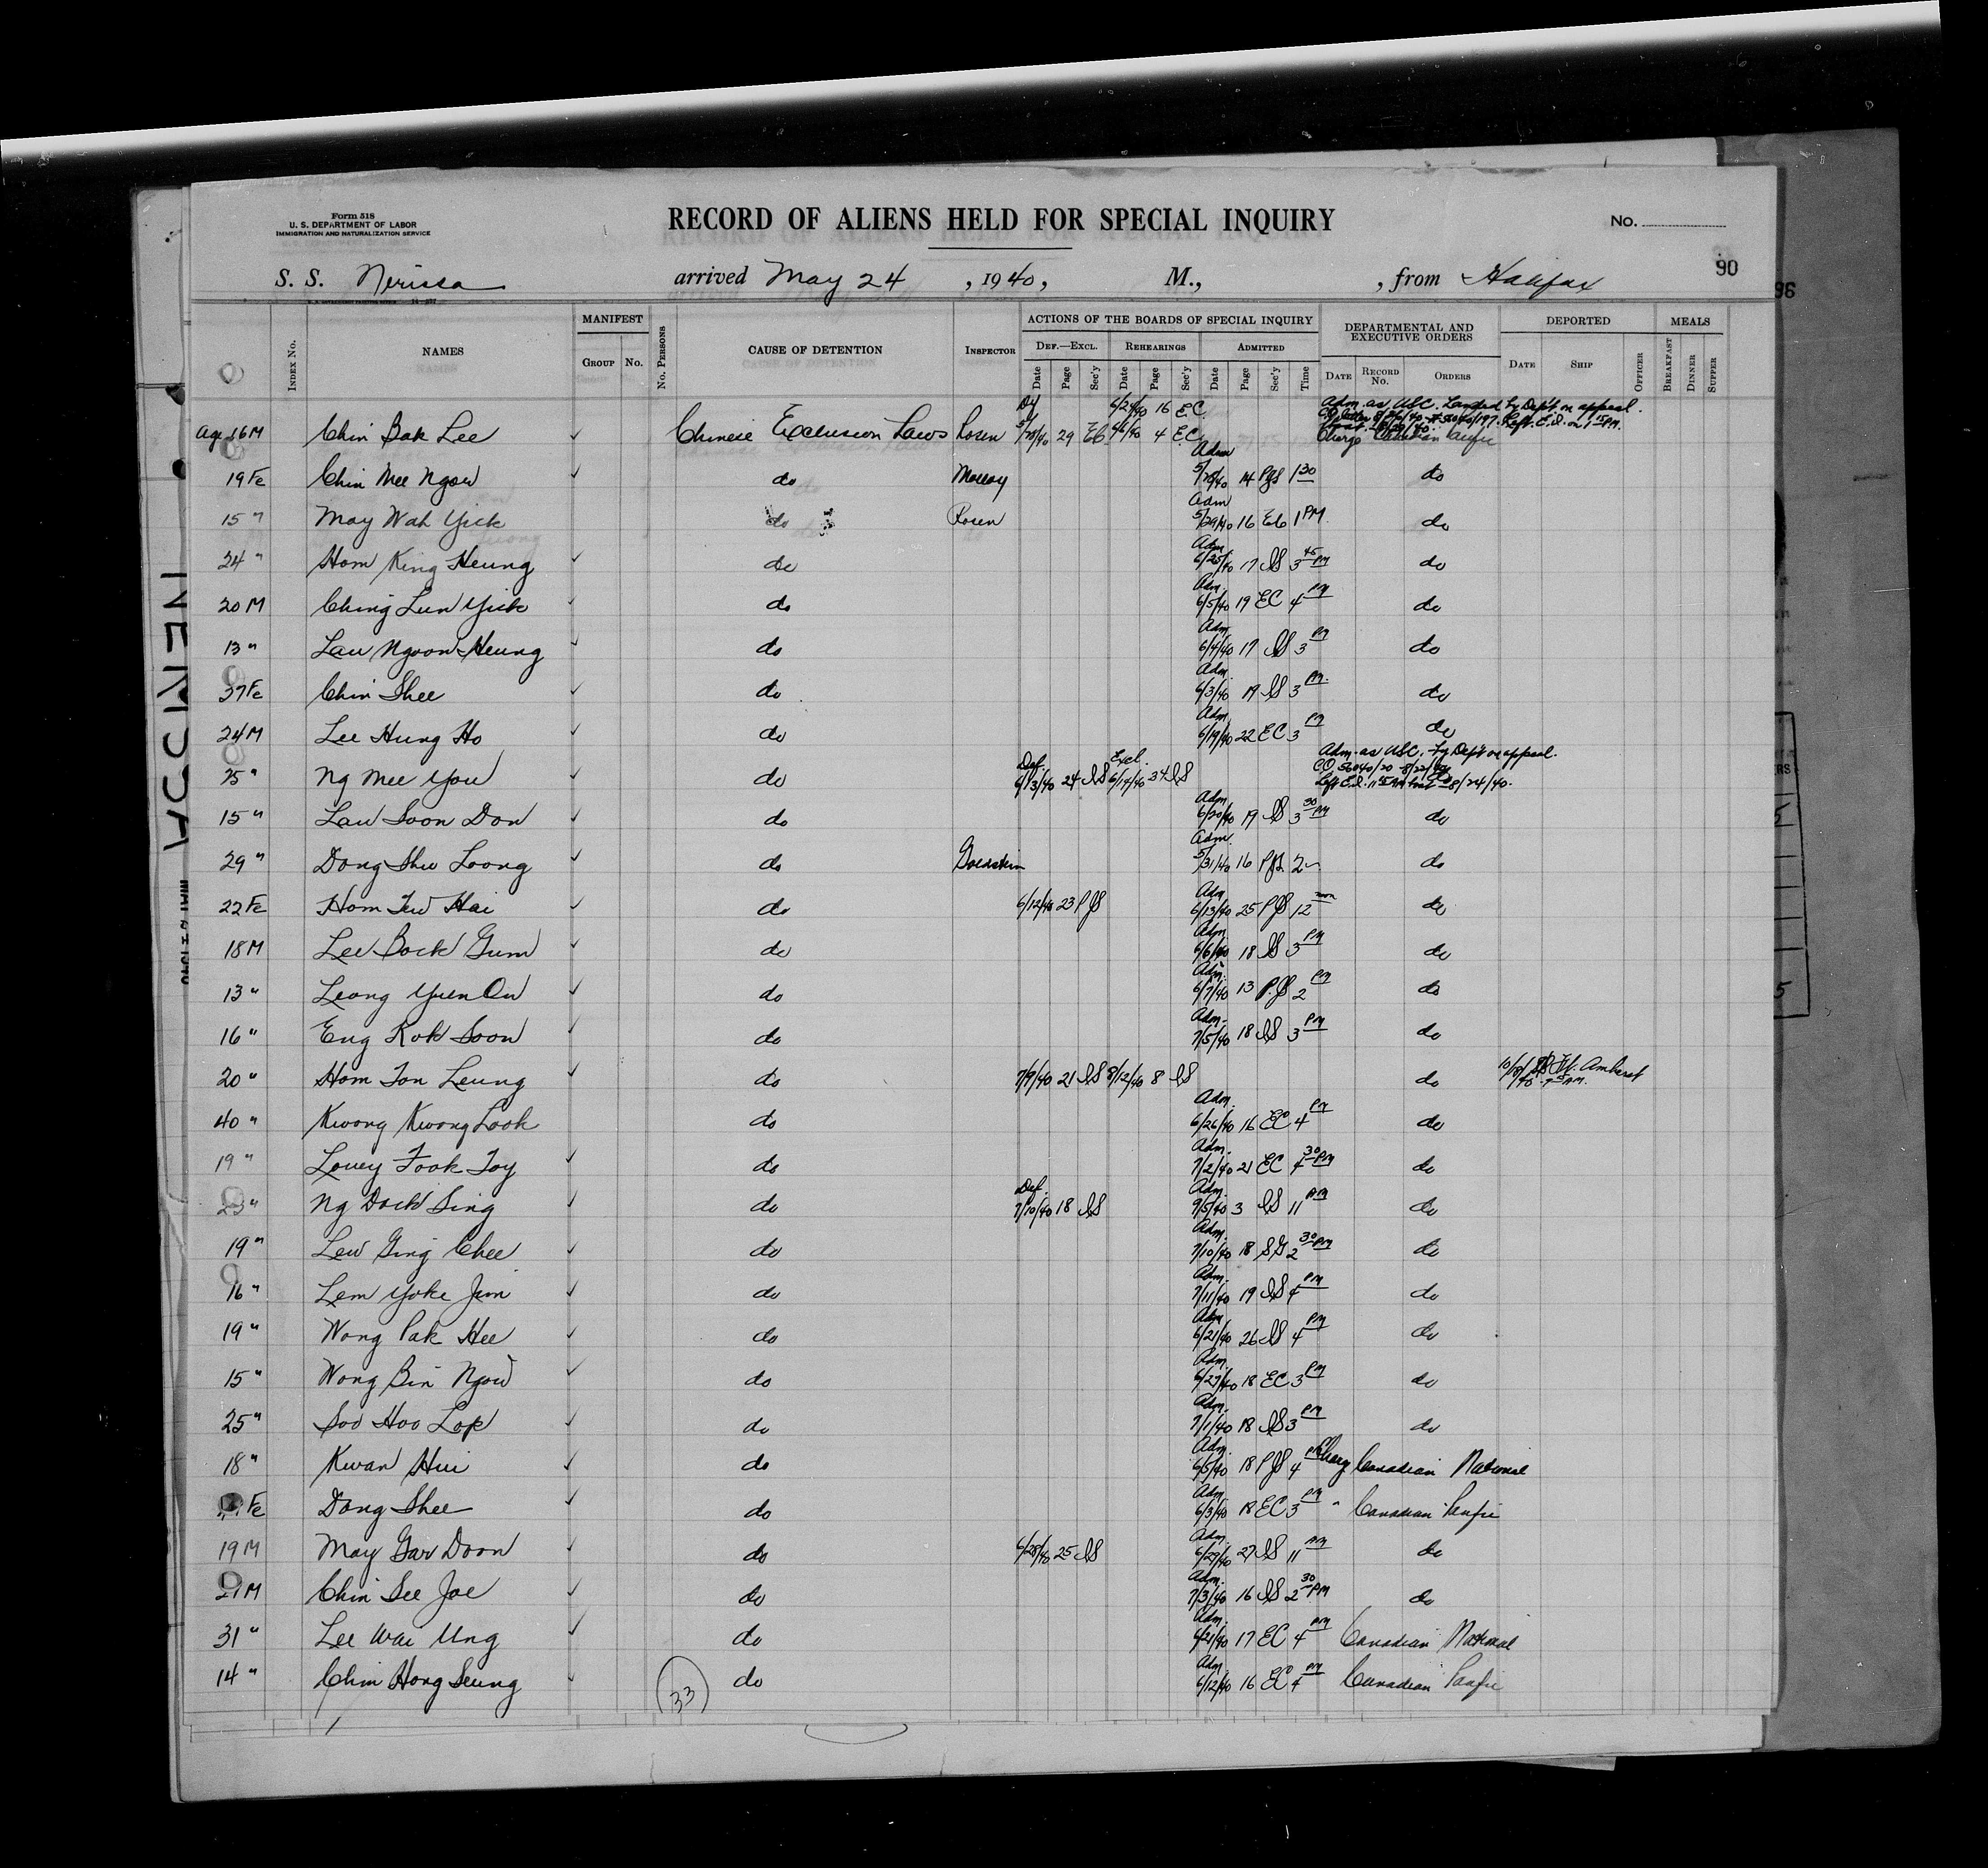 Form 518
U. S. DEPARTMENT OF LABOR
IMMIGRATION AND NATURALIZATION SERVICE
RECORD OF ALIENS HELD FOR SPECIAL INQUIRY
No.
90
S. S. Nerissa arrived May 24, 1940, M., , from Halifax
96
INDEX No. NAMES MANIFEST GROUP No. No. PERSONS CAUSE OF DETENTION INSPECTOR ACTIONS OF THE BOARDS OF SPECIAL INQUIRY DEF.—EXCL. Date Page Sec'y REHEARINGS Date Page Sec'y ADMITTED Date Page Sec'y Time DEPARTMENTAL AND EXECUTIVE ORDERS DATE RECORD No. ORDERS DEPORTED DATE SHIP OFFICER MEALS BREAKFAST DINNER SUPPER
Age 16 M Chin Bak Lee ✓ Chinese Exclusion Laws Rosen Def 5/28/40 29 16 EC 4 EC Adm. as USC. Landed by Dept. on appeal. Left E.I. on 1 15 PM. Charge Canadian Pacific
19 Fe Chin Mee Ngow ✓ do Adm 5/28/40 14 PJS 1 30 do
15 " May Wah Yick do Rosen Adm 5/29/40 16 1 PM do
24 " Hom King Heung ✓ do Adm 6/25/40 17 SS 3 45 PM do
20 M Ching Lun Yick ✓ do Adm. 6/5/40 19 EC 4 PM do
13 " Lau Ngoon Heung ✓ do Adm. 6/4/40 17 SS 3 PM do
37 Fe Chin Shee ✓ do Adm. 6/3/40 19 SS 3 PM. do
24 M Lee Hung Ho ✓ do Adm. 6/19/40 22 EC 3 PM do
25 " Ng Mee You ✓ do Def. 6/13/40 24 SS Excl. 6/14/40 34 SS Adm. as USC. by Dept on appeal. CO 56040/20 8/22/40 Left E.I. 11 15 AM boat 8/24/40.
15 " Lau Soon Don ✓ do Adm. 6/20/40 19 SS 3 30 PM do
29 " Dong Shu Loong ✓ do Goldstein Adm. 5/31/40 16 PJS 2 do
22 Fe Hom Tew Hai ✓ do 6/12/40 23 PJS Adm. 6/13/40 25 PJS 12 noon do
18 M Lee Bock Gum ✓ do Adm. 6/6/40 18 SS 3 PM do
13 " Leong Yuen On ✓ do Adm. 6/7/40 13 PJS 2 PM do
16 " Eng Kok Soon ✓ do Adm. 7/5/40 18 SS 3 PM do
20 " Hom Ton Leung ✓ do 7/9/40 21 SS 8/12/40 8 SS do SS Ft. Amherst
40 " Kwong Kwong Look ✓ do Adm. 6/26/40 16 EC 4 PM do
19 " Louey Fook Toy ✓ do Adm. 7/2/40 21 EC 4 30 PM do
23 " Ng Dock Sing ✓ do Def. 7/10/40 18 SS Adm. 9/5/40 3 SS 11 AM do
19 " Lew Ging Chee ✓ do Adm. 7/10/40 18 SG 2 30 PM do
16 " Lem Yoke Jim ✓ do Adm. 7/11/40 19 SS 4 PM do
19 " Wong Pak Hee ✓ do Adm 6/21/40 26 SS 4 PM do
15 " Wong Bin Ngow ✓ do Adm. 6/27/40 18 EC 3 PM do
25 " Soo Hoo Lop ✓ do Adm. 7/1/40 18 SS 3 PM do
18 " Kwan Hui ✓ do Adm. 6/5/40 18 PJS 4 PM Charg Canadian National
Fe Dong Shee ✓ do Adm. 6/3/40 18 EC 3 PM " Canadian Pacific
19 M May Gar Doon ✓ do 6/28/40 25 SS Adm. 6/29/40 27 SS 11 AM do
21 M Chin See Joe ✓ do Adm. 7/3/40 16 SS 2 30 PM do
31 " Lee Wai Ung ✓ do Adm. 6/21/40 17 EC 4 PM Canadian National
14 " Chin Hong Seung ✓ 33 do Adm 6/12/40 16 EC 4 PM Canadian Pacific
NERISSA